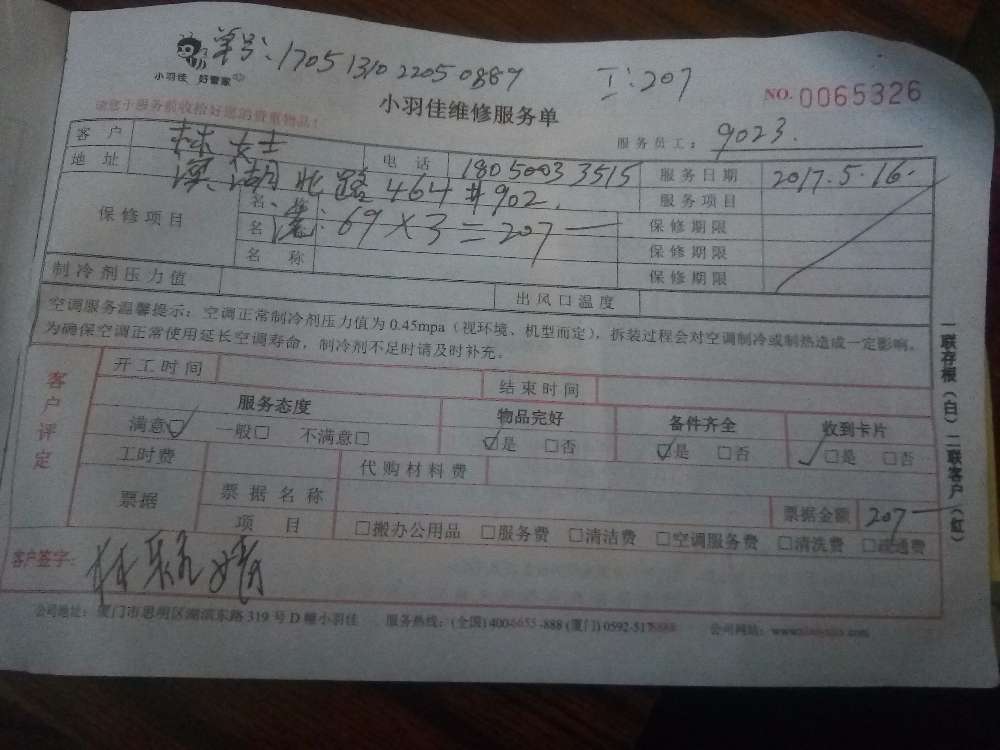 单号:1705131022050889
I:207
小羽佳 好管家
NO.0065326
小羽佳维修服务单
请您于服务前收拾好您的贵重物品!
服务员工:9023.
客户 林女士 电话 18050033515 服务日期 2017.5.16.
地址 湖北路464#902. 服务项目
保修项目 名称 保修期限
名 清:69×3=207 保修期限
名称 保修期限
制冷剂压力值 出风口温度
空调服务温馨提示:空调正常制冷剂压力值为0.45mpa(视环境、机型而定),拆装过程会对空调制冷或制热造成一定影响。
为确保空调正常使用延长空调寿命,制冷剂不足时请及时补充。
客户评定
开工时间 结束时间
服务态度 物品完好 备件齐全 收到卡片
满意☑ 一般□ 不满意□ ☑是 □否 ☑是 □否 ✓□是 □否
工时费 代购材料费
票据 票据名称 票据金额 207
项目 □搬办公用品 □服务费 □清洁费 □空调服务费 □清洗费 □疏通费
客户签字:林
公司地址:厦门市思明区湖滨东路319号D幢小羽佳 服务热线:(全国)4006655-888(厦门)0592-517 公司网站:
一联存根(白)二联客户(红)